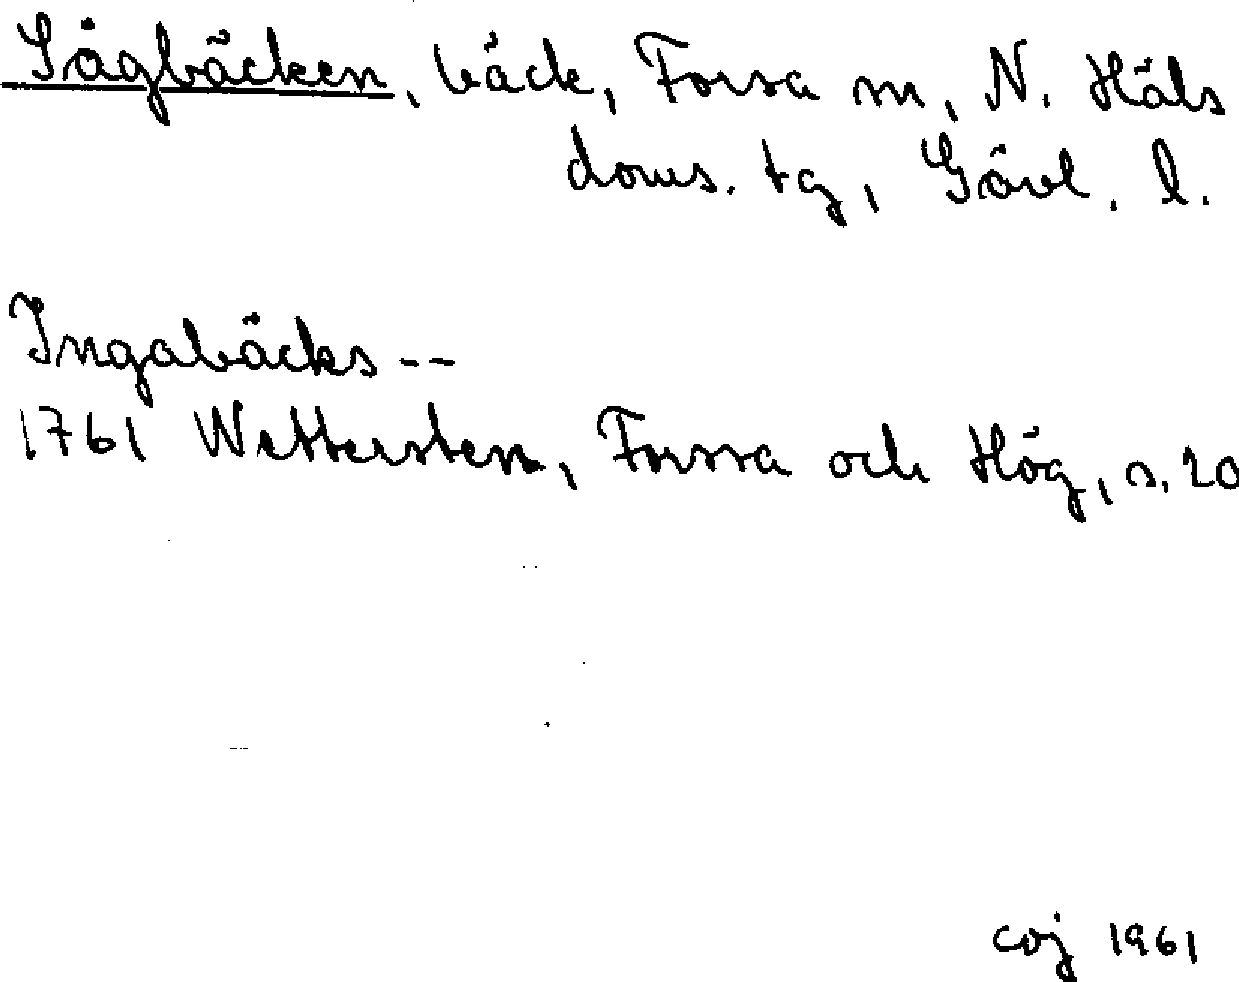 Sågbäcken, bäck, Forsa sn, N. Häls
doms. tg, Gävl. l.
Ingabäcks --
1761 Wettersten, Forssa och Hög, s. 20
coj 1961